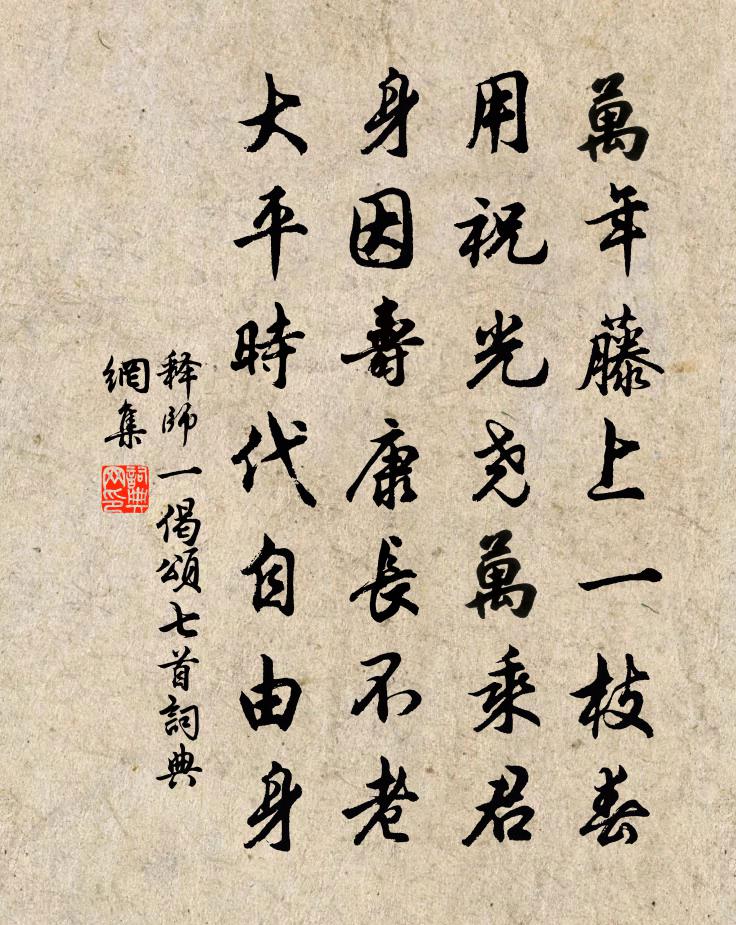 萬年藤上一枝春
用祝光尧萬乘君
身因壽康長不老
大平時代自由身
释師一偈頌七首詞典
網集
詞典
网印